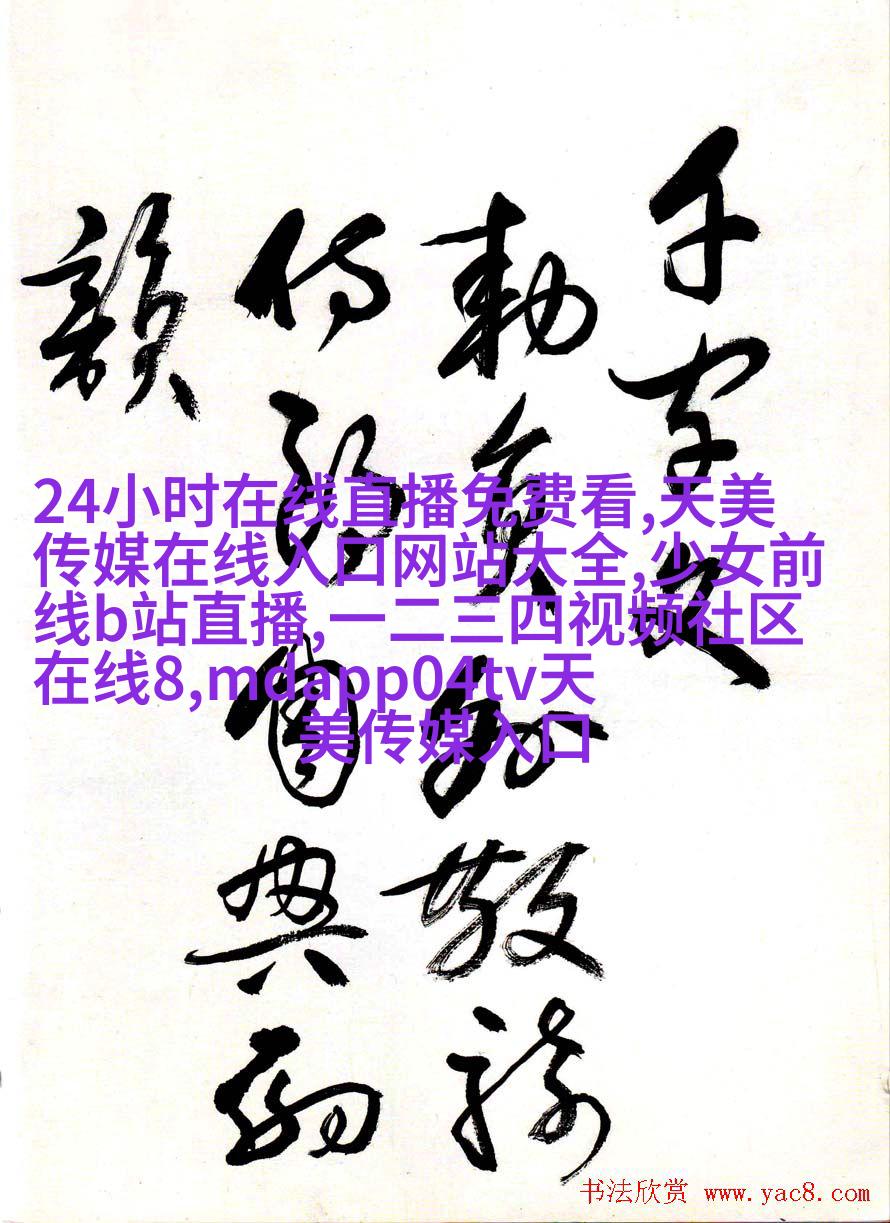 千字文
勅員外散騎
侍郎周興嗣
韻
24小时在线直播免费看,天美
传媒在线入口网站大全,少女前
线b站直播,一二三四视频社区
在线8,mdapp04tv天
美传媒入口
书法欣赏 www.yac8.com